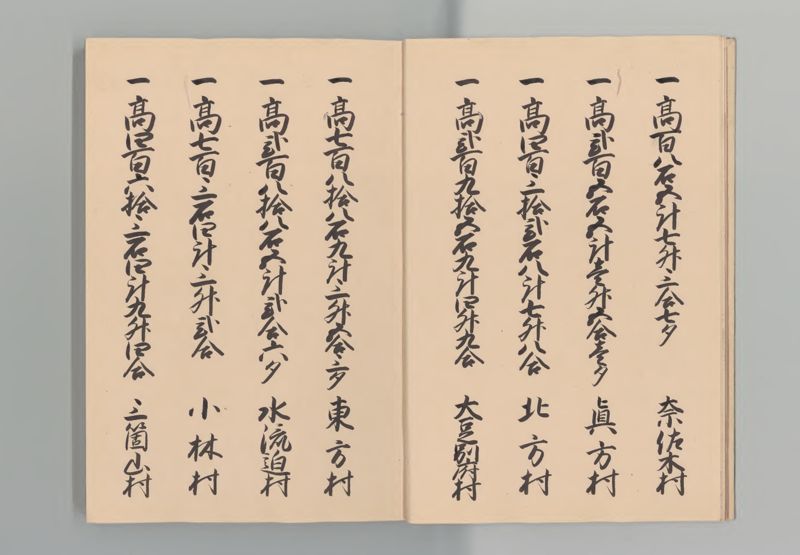 一 高百八石五斗七升三合七夕 奈佐木村
一 高弐百五石五斗壱升五合壱夕 眞方村
一 高四百三拾弐石八斗七升八合 北方村
一 高弐百九拾五石九斗四升九合 大豆別府村
一 高七百八拾八石九斗三升五合三夕 東方村
一 高弐百八拾八石五斗弐合六夕 水流迫村
一 高七百三石四斗三升弐合 小林村
一 高四百六拾三石四斗九升四合 三箇山村